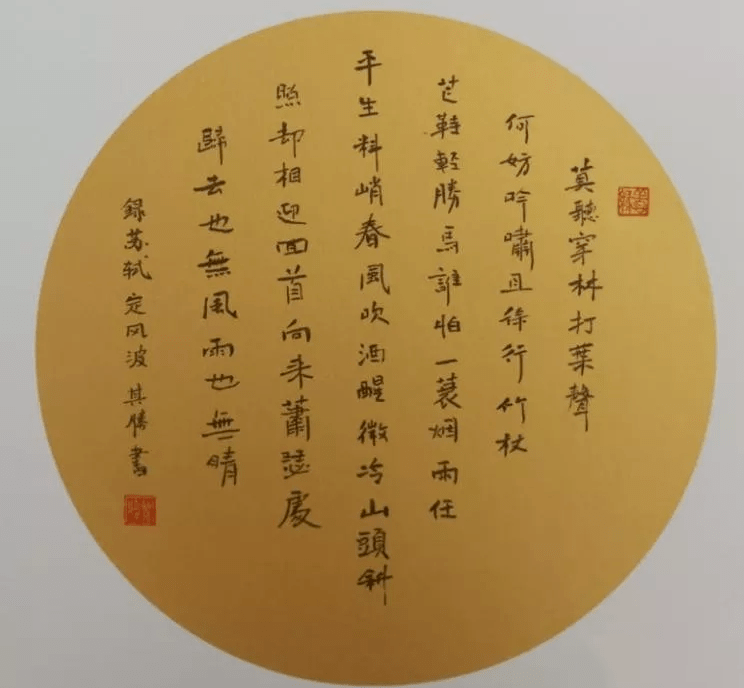 莫聽穿林打葉聲
何妨吟嘯且徐行竹杖
芒鞋輕勝馬誰怕一蓑烟雨任
平生料峭春風吹酒醒微冷山頭斜
照却相迎囬首向来蕭瑟處
歸去也無風雨也無晴
録苏轼定风波其勝書